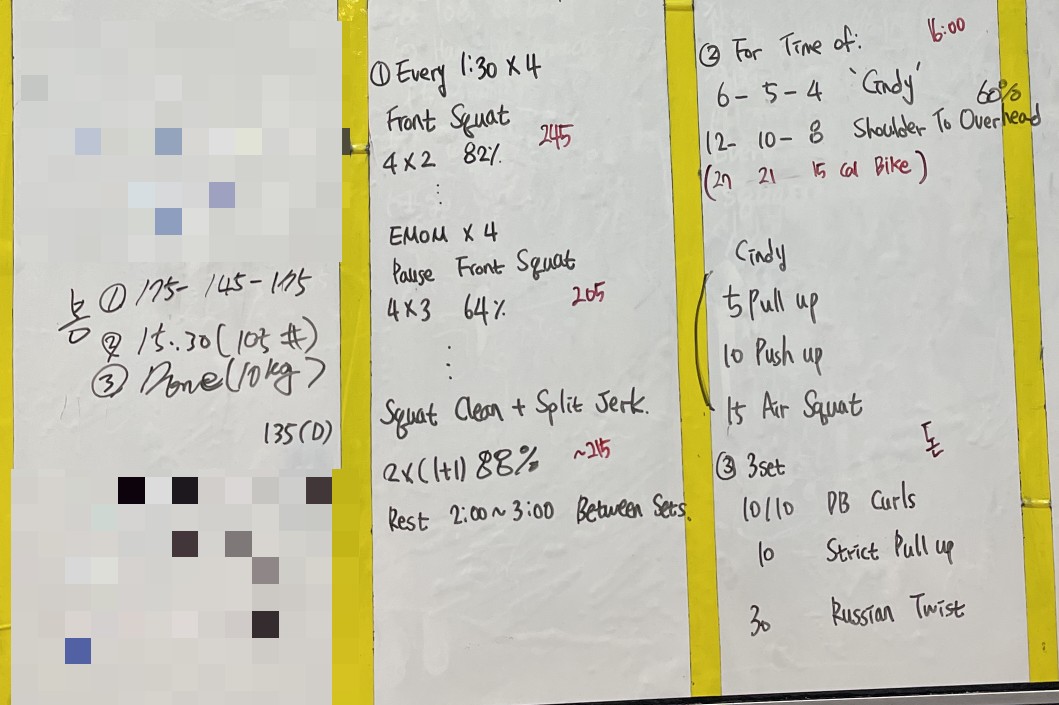 봉 ① 175- 145-175
② 15:30 (105 #)
③ Done (10kg)
135(D)
① Every 1:30 X 4
Front Squat
4 X 2 82% 245
⋮
EMOM X 4
Pause Front Squat
4 X 3 64% 205
⋮
Squat Clean + Split Jerk.
2x(1+1) 88% ~215
Rest 2:00 ~ 3:00 Between Sets.
② For Time of: 16:00
6 - 5 - 4 'Cindy' 60%
12- 10 - 8 Shoulder To Overhead
(27 21 15 Cal Bike)
Cindy
5 Pull up
10 Push up
15 Air Squat
③ 3set
10/10 DB Curls
10 Strict Pull up
30 Russian Twist